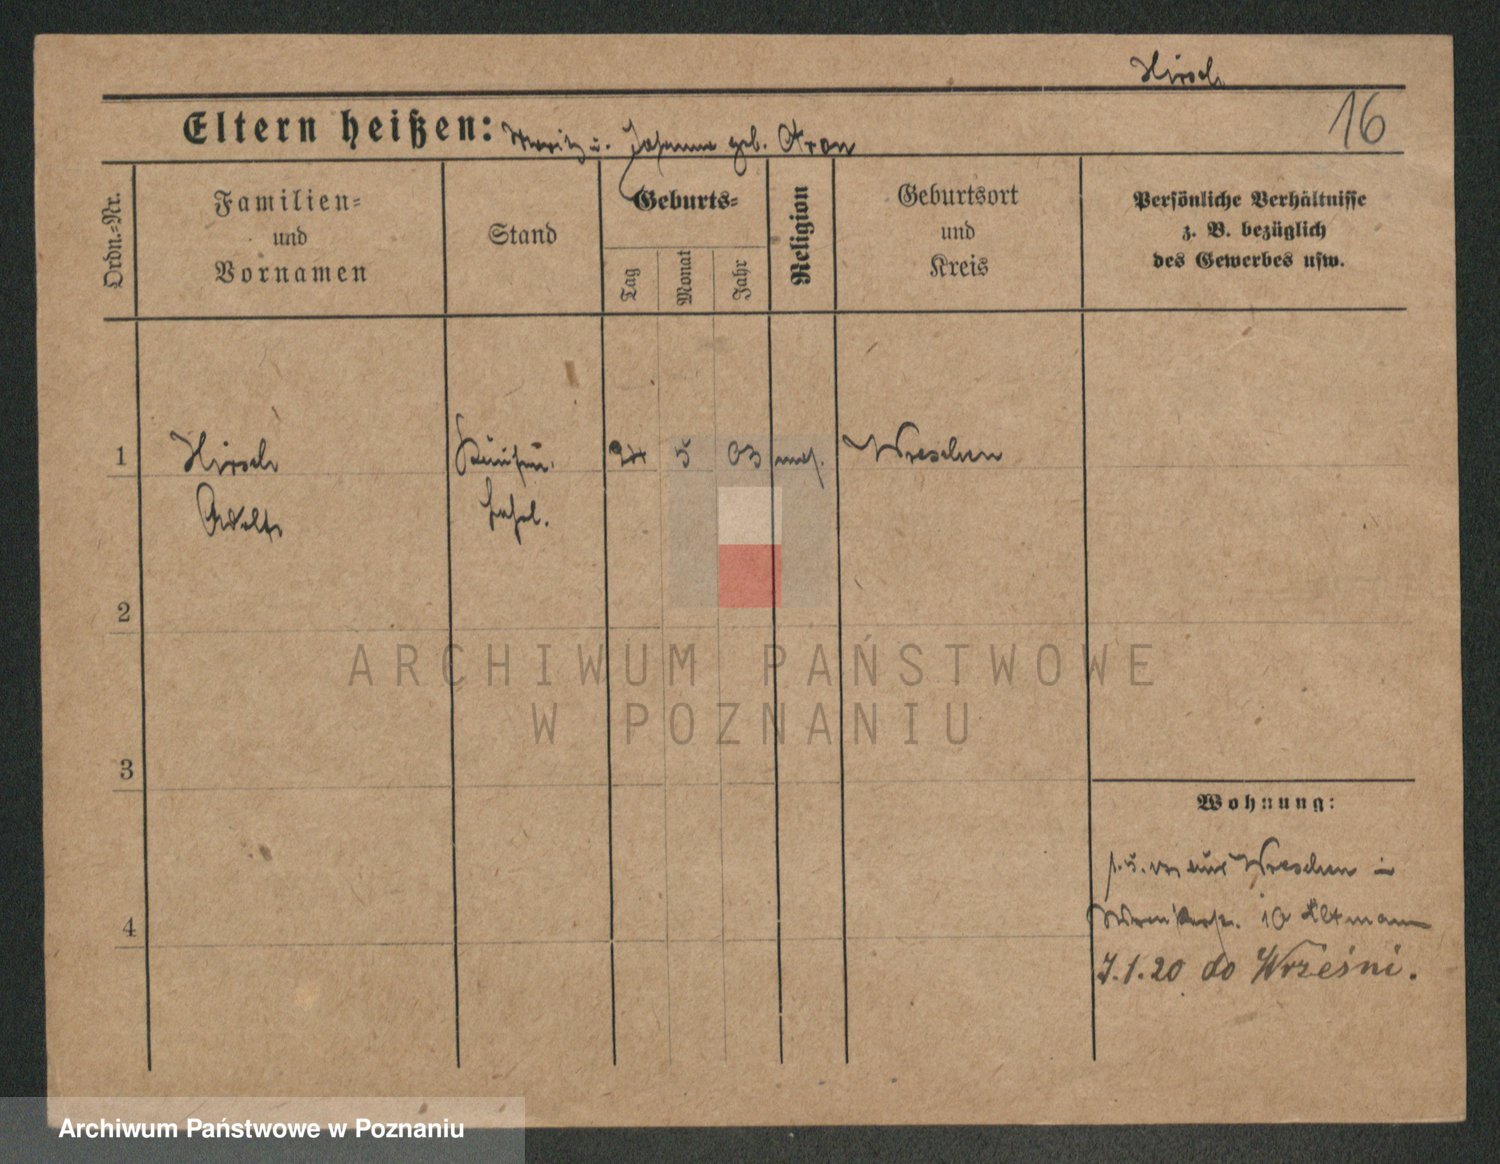 Hirsch
16
Eltern heißen: Moritz u. Johanna geb. Kron
Ordn.-Nr.
Familien-
und
Vornamen
Stand
Geburts-
Tag
Monat
Jahr
Religion
Geburtsort
und
Kreis
Persönliche Verhältnisse
z. B. bezüglich
des Gewerbes usw.
1
Hirsch
Adolf
5
03
mos.
Wreschen
2
3
4
ARCHIWUM PAŃSTWOWE
W POZNANIU
Wohnung:
aus Wreschen
10 Altmann
7.1.20 do Wrześni.
Archiwum Państwowe w Poznaniu